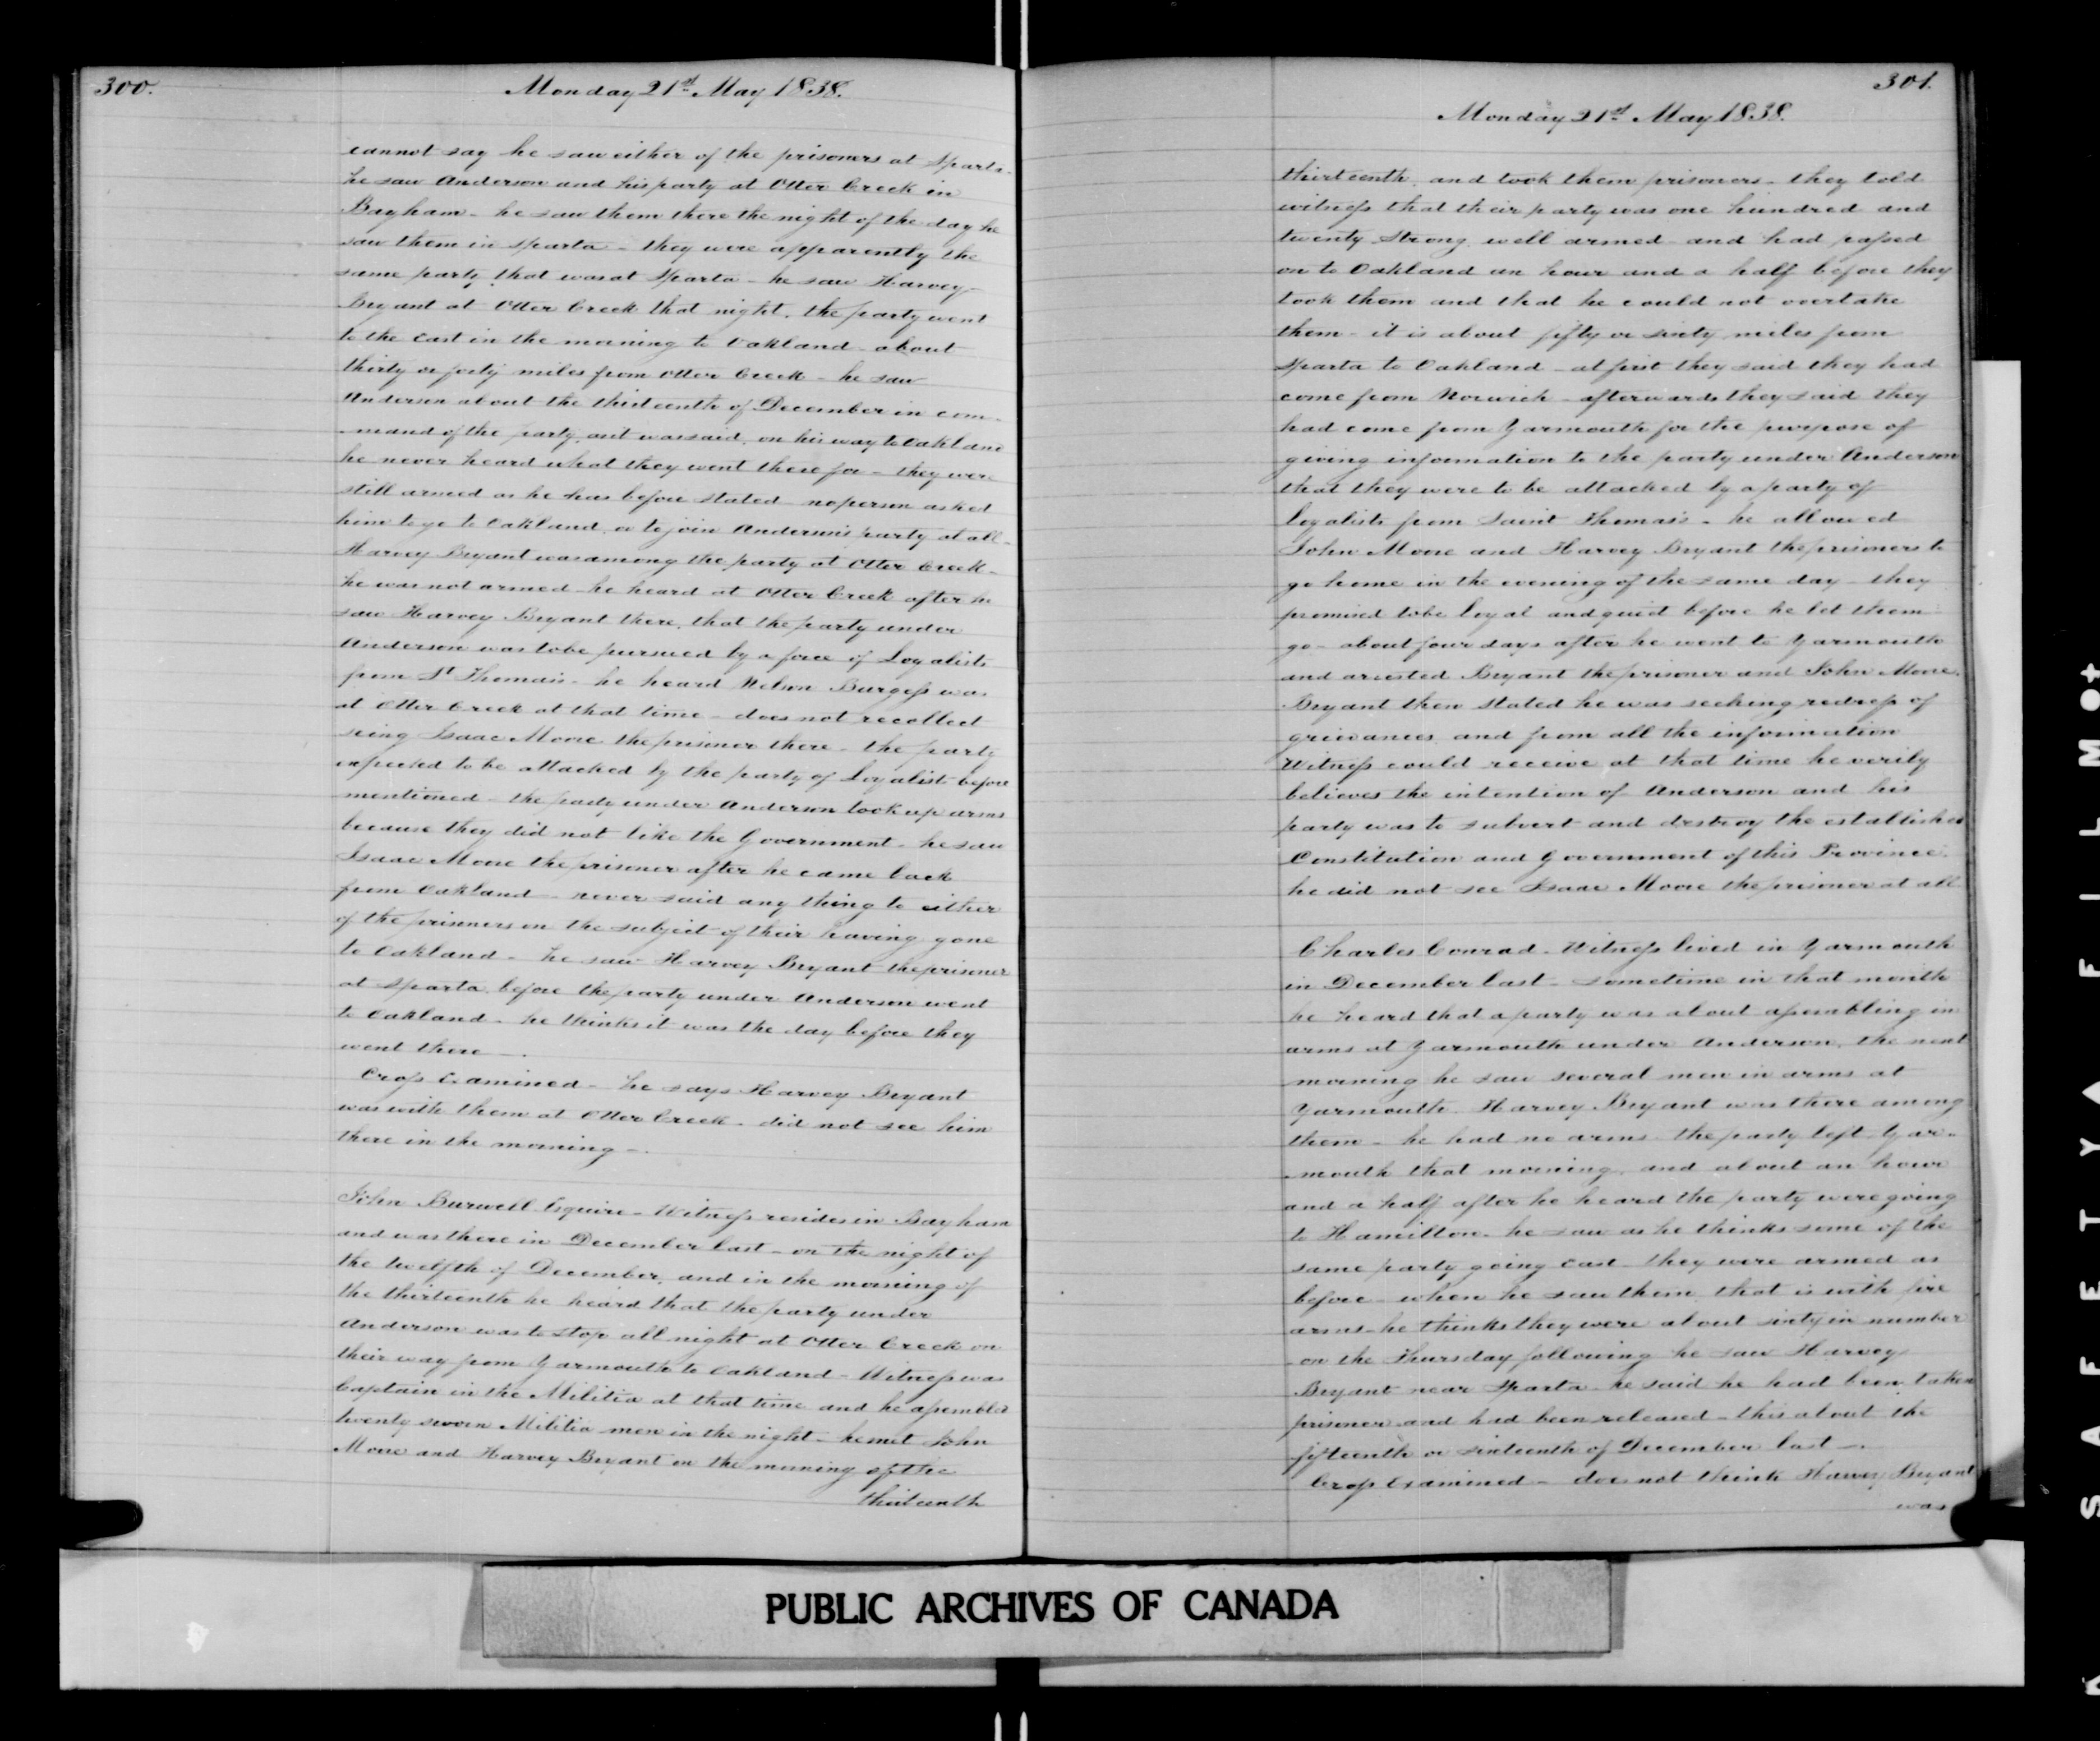 300.
Monday 21st May 1838.
cannot say he saw either of the prisoners at Sparta-
he saw Anderson and his party at Otter Creek in
Bayham - he saw them there the night of the day he
saw them in Sparta - they were apparently the
same party that was at Sparta - he saw Harvey
Bryant at Otter Creek that night. the party went
to the East in the morning to Oakland - about
thirty or forty miles from Otter Creek - he saw
Anderson about the thirteenth of December in com-
-mand of the party, as it was said, on his way to Oakland
he never heard what they went there for - they were
still armed as he has before stated - no person asked
him to go to Oakland, or to join Anderson's party at all -
Harvey Bryant was among the party at Otter Creek -
he was not armed - he heard at Otter Creek after he
saw Harvey Bryant there, that the party under
Anderson was to be pursued by a force of Loyalists
from St Thomas's - he heard Nelson Burgess was
at Otter Creek at that time - does not recollect
seing Isaac Moore the prisoner there - the party
expected to be attacked by the party of Loyalist before
mentioned - the party under Anderson took up arms
because they did not like the Government - he saw
Isaac Moore the prisoner after he came back
from Oakland - never said any thing to either
of the prisoners on the subject of their having gone
to Oakland - he saw Harvey Bryant the prisoner
at Sparta before the party under Anderson went
to Oakland - he thinks it was the day before they
went there -.
Cross Examined - he says Harvey Bryant
was with them at Otter Creek - did not see him
there in the morning -.
John Burwell Esquire - Witness resides in Bayham
and was there in December last - on the night of
the twelfth of December, and in the morning of
the thirteenth he heard that the party under
Anderson was to stop all night at Otter Creek on
their way from Yarmouth to Oakland - Witness was
Captain in the Militia at that time and he assembled
twenty seven Militia men in the night - he met John
Moore and Harvey Bryant on the morning of the
thirteenth
301.
Monday 21st May 1838.
thirteenth, and took them prisoners - they told
witness that their party was one hundred and
twenty strong well armed and had passed
on to Oakland an hour and a half before they
took them and that he could not overtake
them - it is about fifty or sixty miles from
Sparta to Oakland - at first they said they had
come from Norwich - afterwards they said they
had come from Yarmouth for the purpose of
giving information to the party under Anderson
that they were to be attacked by a party of
loyalists from Saint Thomas's - he allowed
John Moore and Harvey Bryant the prisoners to
go home in the evening of the same day - they
promised to be loyal and quiet before he let them
go - about four days after he went to Yarmouth
and arrested Bryant the prisoner and John Moore.
Bryant then stated he was seeking redress of
grievances, and from all the information
Witness could receive at that time he verily
believes the intention of Anderson and his
party was to subvert and destroy the established
Constitution and Government of this Province.
he did not see Isaac Moore the prisoner at all
Charles Conrad - Witness lived in Yarmouth
in December last - sometime in that month
he heard that a party was about assembling in
arms at Yarmouth under Anderson, the next
morning he saw several men in arms at
Yarmouth. Harvey Bryant was there among
them - he had no arms. the party left Yar-
-mouth that morning, and about an hour
and a half after he heard the party were going
to Hamilton - he saw as he thinks some of the
same party going East - they were armed as
before - when he saw them, that is with fire
arms - he thinks they were about sixty in number
- on the Thursday following he saw Harvey
Bryant near Sparta - he said he had been taken
prisoner and had been released - this about the
fifteenth or sixteenth of December last -.
Cross Examined - does not think Harvey Bryant
was
PUBLIC ARCHIVES OF CANADA
SAFETY▲FILM●